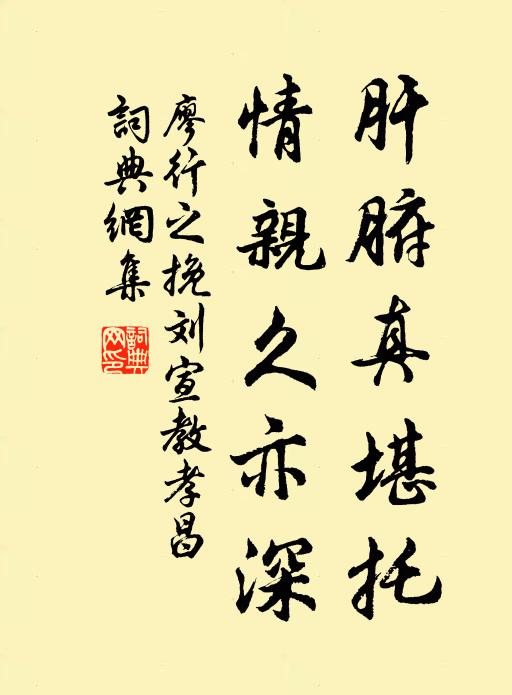 肝腑真堪托
情親久亦深
廖行之挽刘宣教孝昌
詞典網集
詞典网印